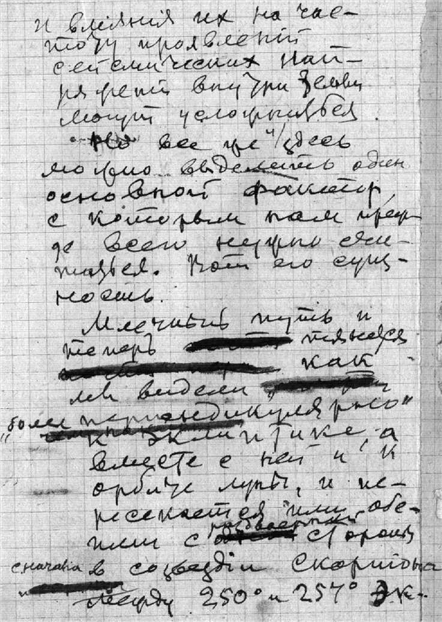 и влияния их на час-
тоту проявленій
сейсмических нап-
ряженій внутри Земли
могут усложниться.
Но все же и здесь
можно выделить один
основной фактор,
с которым нам преж-
де всего нужно счи-
таться. Вот его сущ-
ность.
Млечный путь и
теперь тянется
как
мы видели
"более перпендикулярно"
к эклиптике, а
вместе с ней и к
орбите луны, и пе-
ресекается ими обе-
ими с сторон
сначала в созвездіи Скорпіона
между 250° и 257° эк-